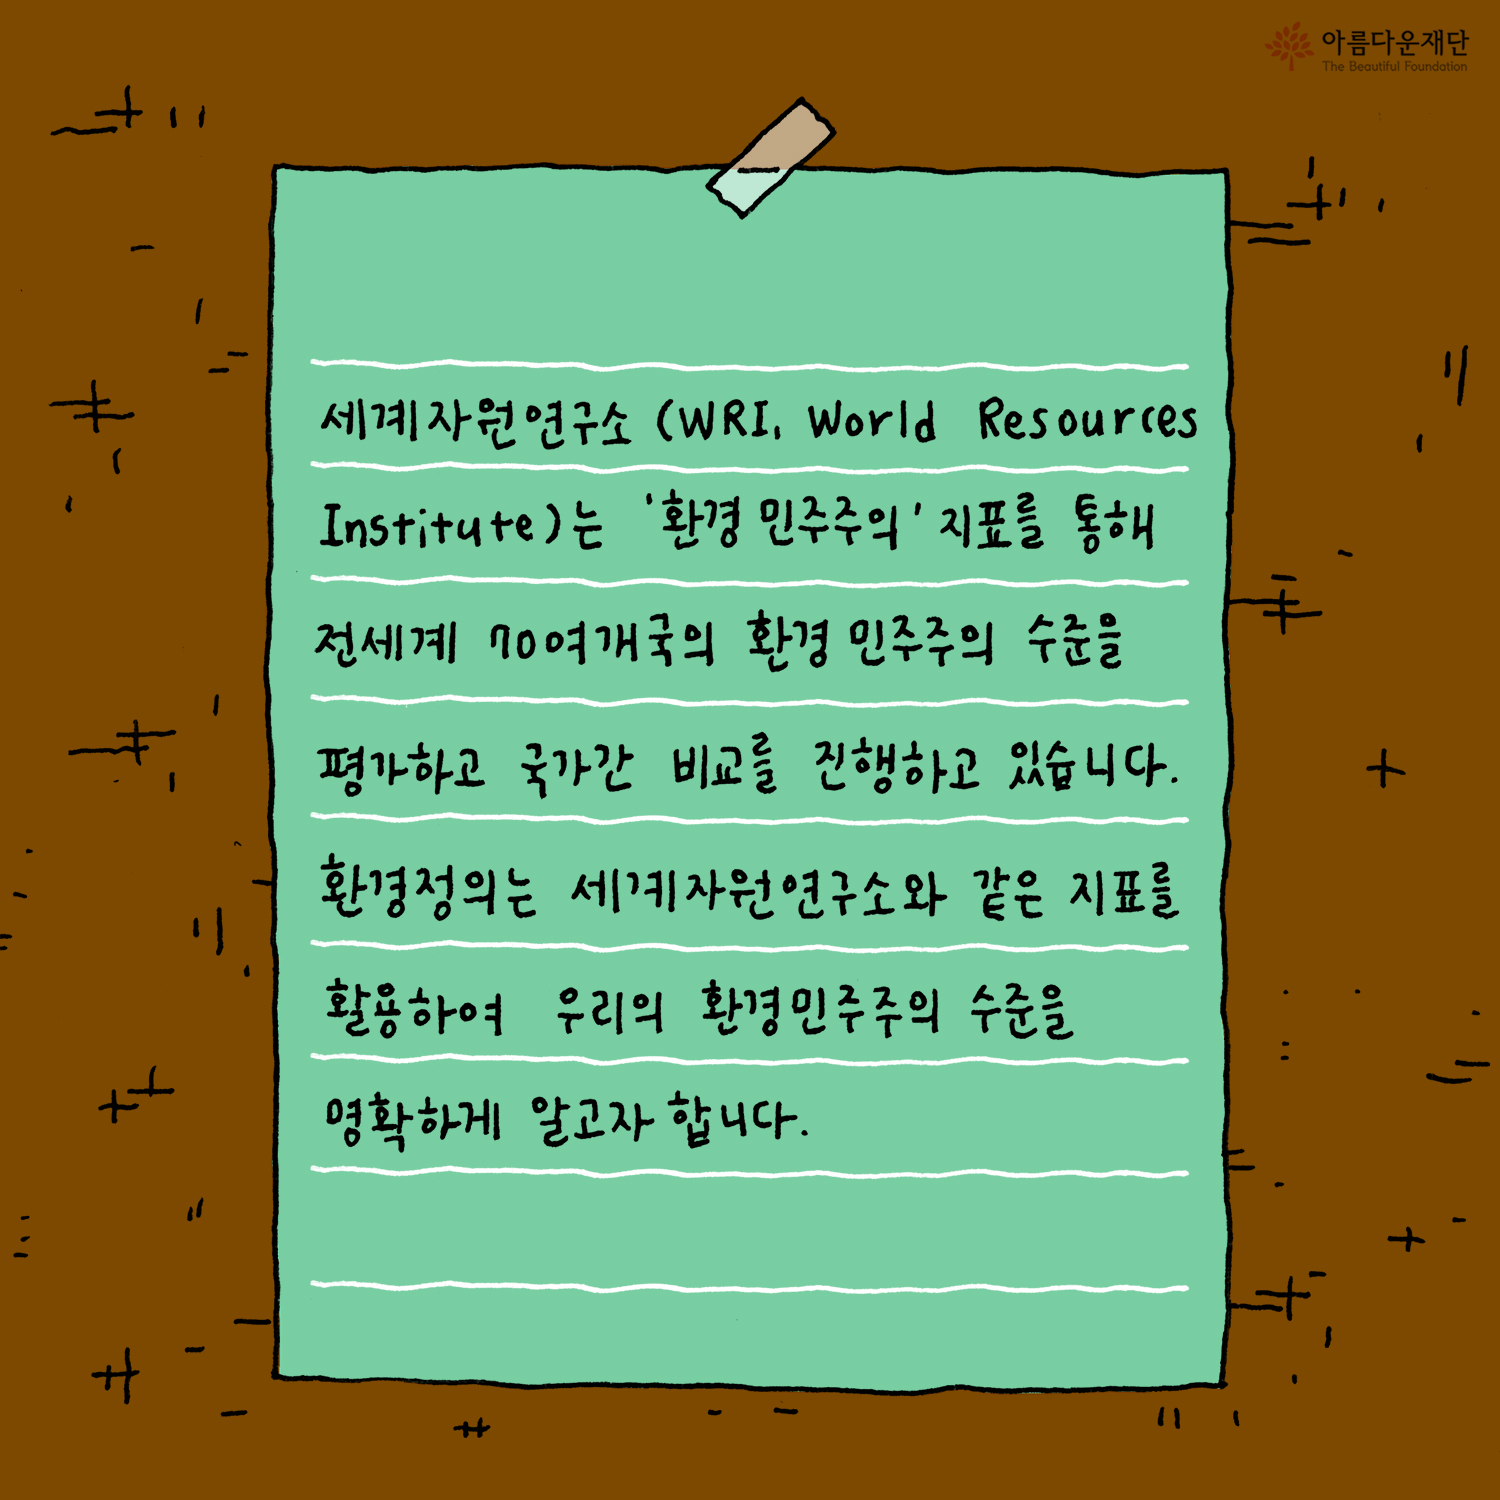 아름다운재단
The Beautiful Foundation
세계자원연구소 (WRI, World Resources
Institute)는 '환경 민주주의' 지표를 통해
전세계 70여개국의 환경 민주주의 수준을
평가하고 국가간 비교를 진행하고 있습니다.
환경정의는 세계자원연구소와 같은 지표를
활용하여 우리의 환경민주주의 수준을
명확하게 알고자 합니다.